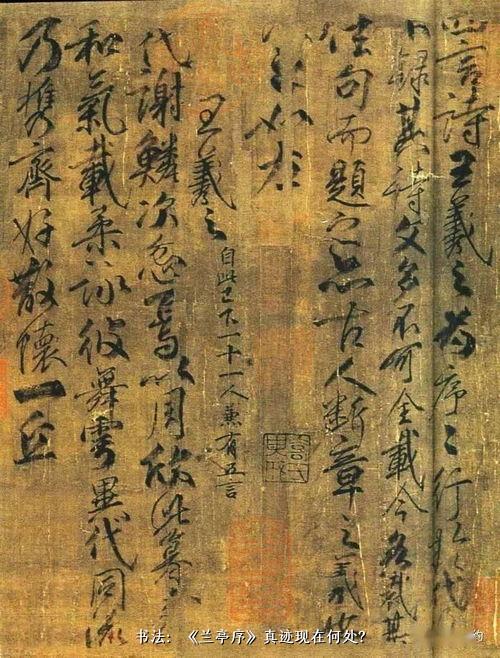 四言詩王羲之為序〻行於代
錄其詩文多不可全載今各裁其
佳句而題之亦古人斷章之義也
如左
王羲之 自此已下一十一人兼有五言
代謝鱗次忽焉以周欣此暮春
和氣載柔詠彼舞雩異代同流
乃攜齊好散懷一丘
书法:《兰亭序》真迹现在何处?